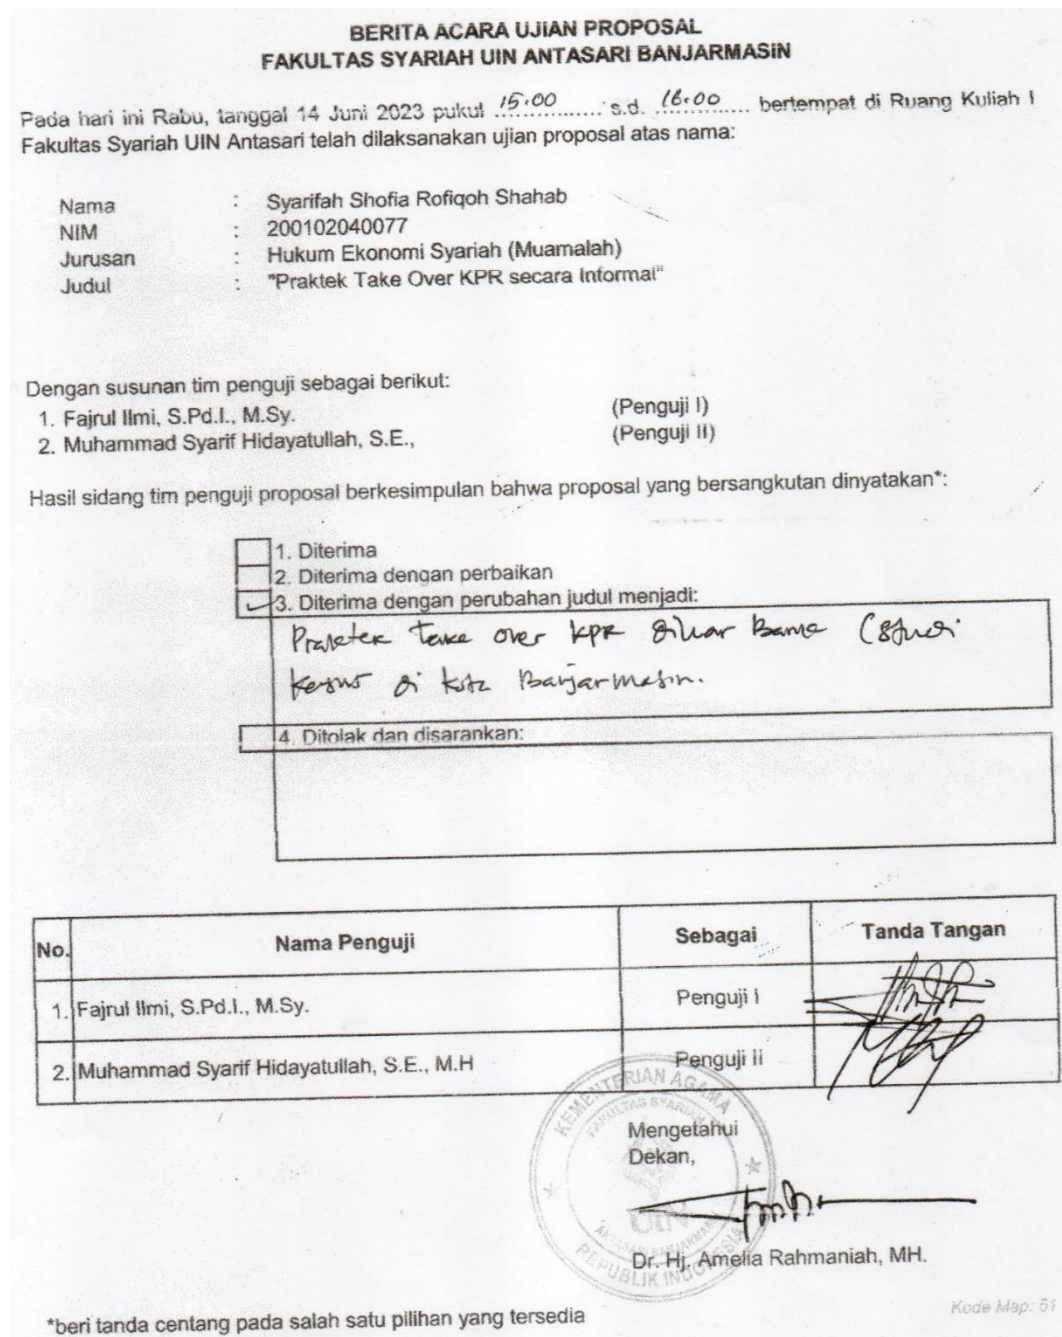 BERITA ACARA UJIAN PROPOSAL
FAKULTAS SYARIAH UIN ANTASARI BANJARMASIN
Pada hari ini Rabu, tanggal 14 Juni 2023 pukul 15.00 s.d. 16.00 bertempat di Ruang Kuliah I
Fakultas Syariah UIN Antasari telah dilaksanakan ujian proposal atas nama:
Nama : Syarifah Shofia Rofiqoh Shahab
NIM : 200102040077
Jurusan : Hukum Ekonomi Syariah (Muamalah)
Judul : "Praktek Take Over KPR secara Informal"
Dengan susunan tim penguji sebagai berikut:
1. Fajrul Ilmi, S.Pd.I., M.Sy. (Penguji I)
2. Muhammad Syarif Hidayatullah, S.E., (Penguji II)
Hasil sidang tim penguji proposal berkesimpulan bahwa proposal yang bersangkutan dinyatakan*:
1. Diterima
2. Diterima dengan perbaikan
3. Diterima dengan perubahan judul menjadi:
Praktek take over KPR diluar (Studi
Kasus di kota Banjarmasin.
4. Ditolak dan disarankan:
No. Nama Penguji Sebagai Tanda Tangan
1. Fajrul Ilmi, S.Pd.I., M.Sy. Penguji I
2. Muhammad Syarif Hidayatullah, S.E., M.H Penguji II
KEMENTERIAN AGAMA
FAKULTAS SYARIAH
UIN
ANTASARI BANJARMASIN
REPUBLIK INDONESIA
Mengetahui
Dekan,
Dr. Hj. Amelia Rahmaniah, MH.
Kode Map: 51
*beri tanda centang pada salah satu pilihan yang tersedia